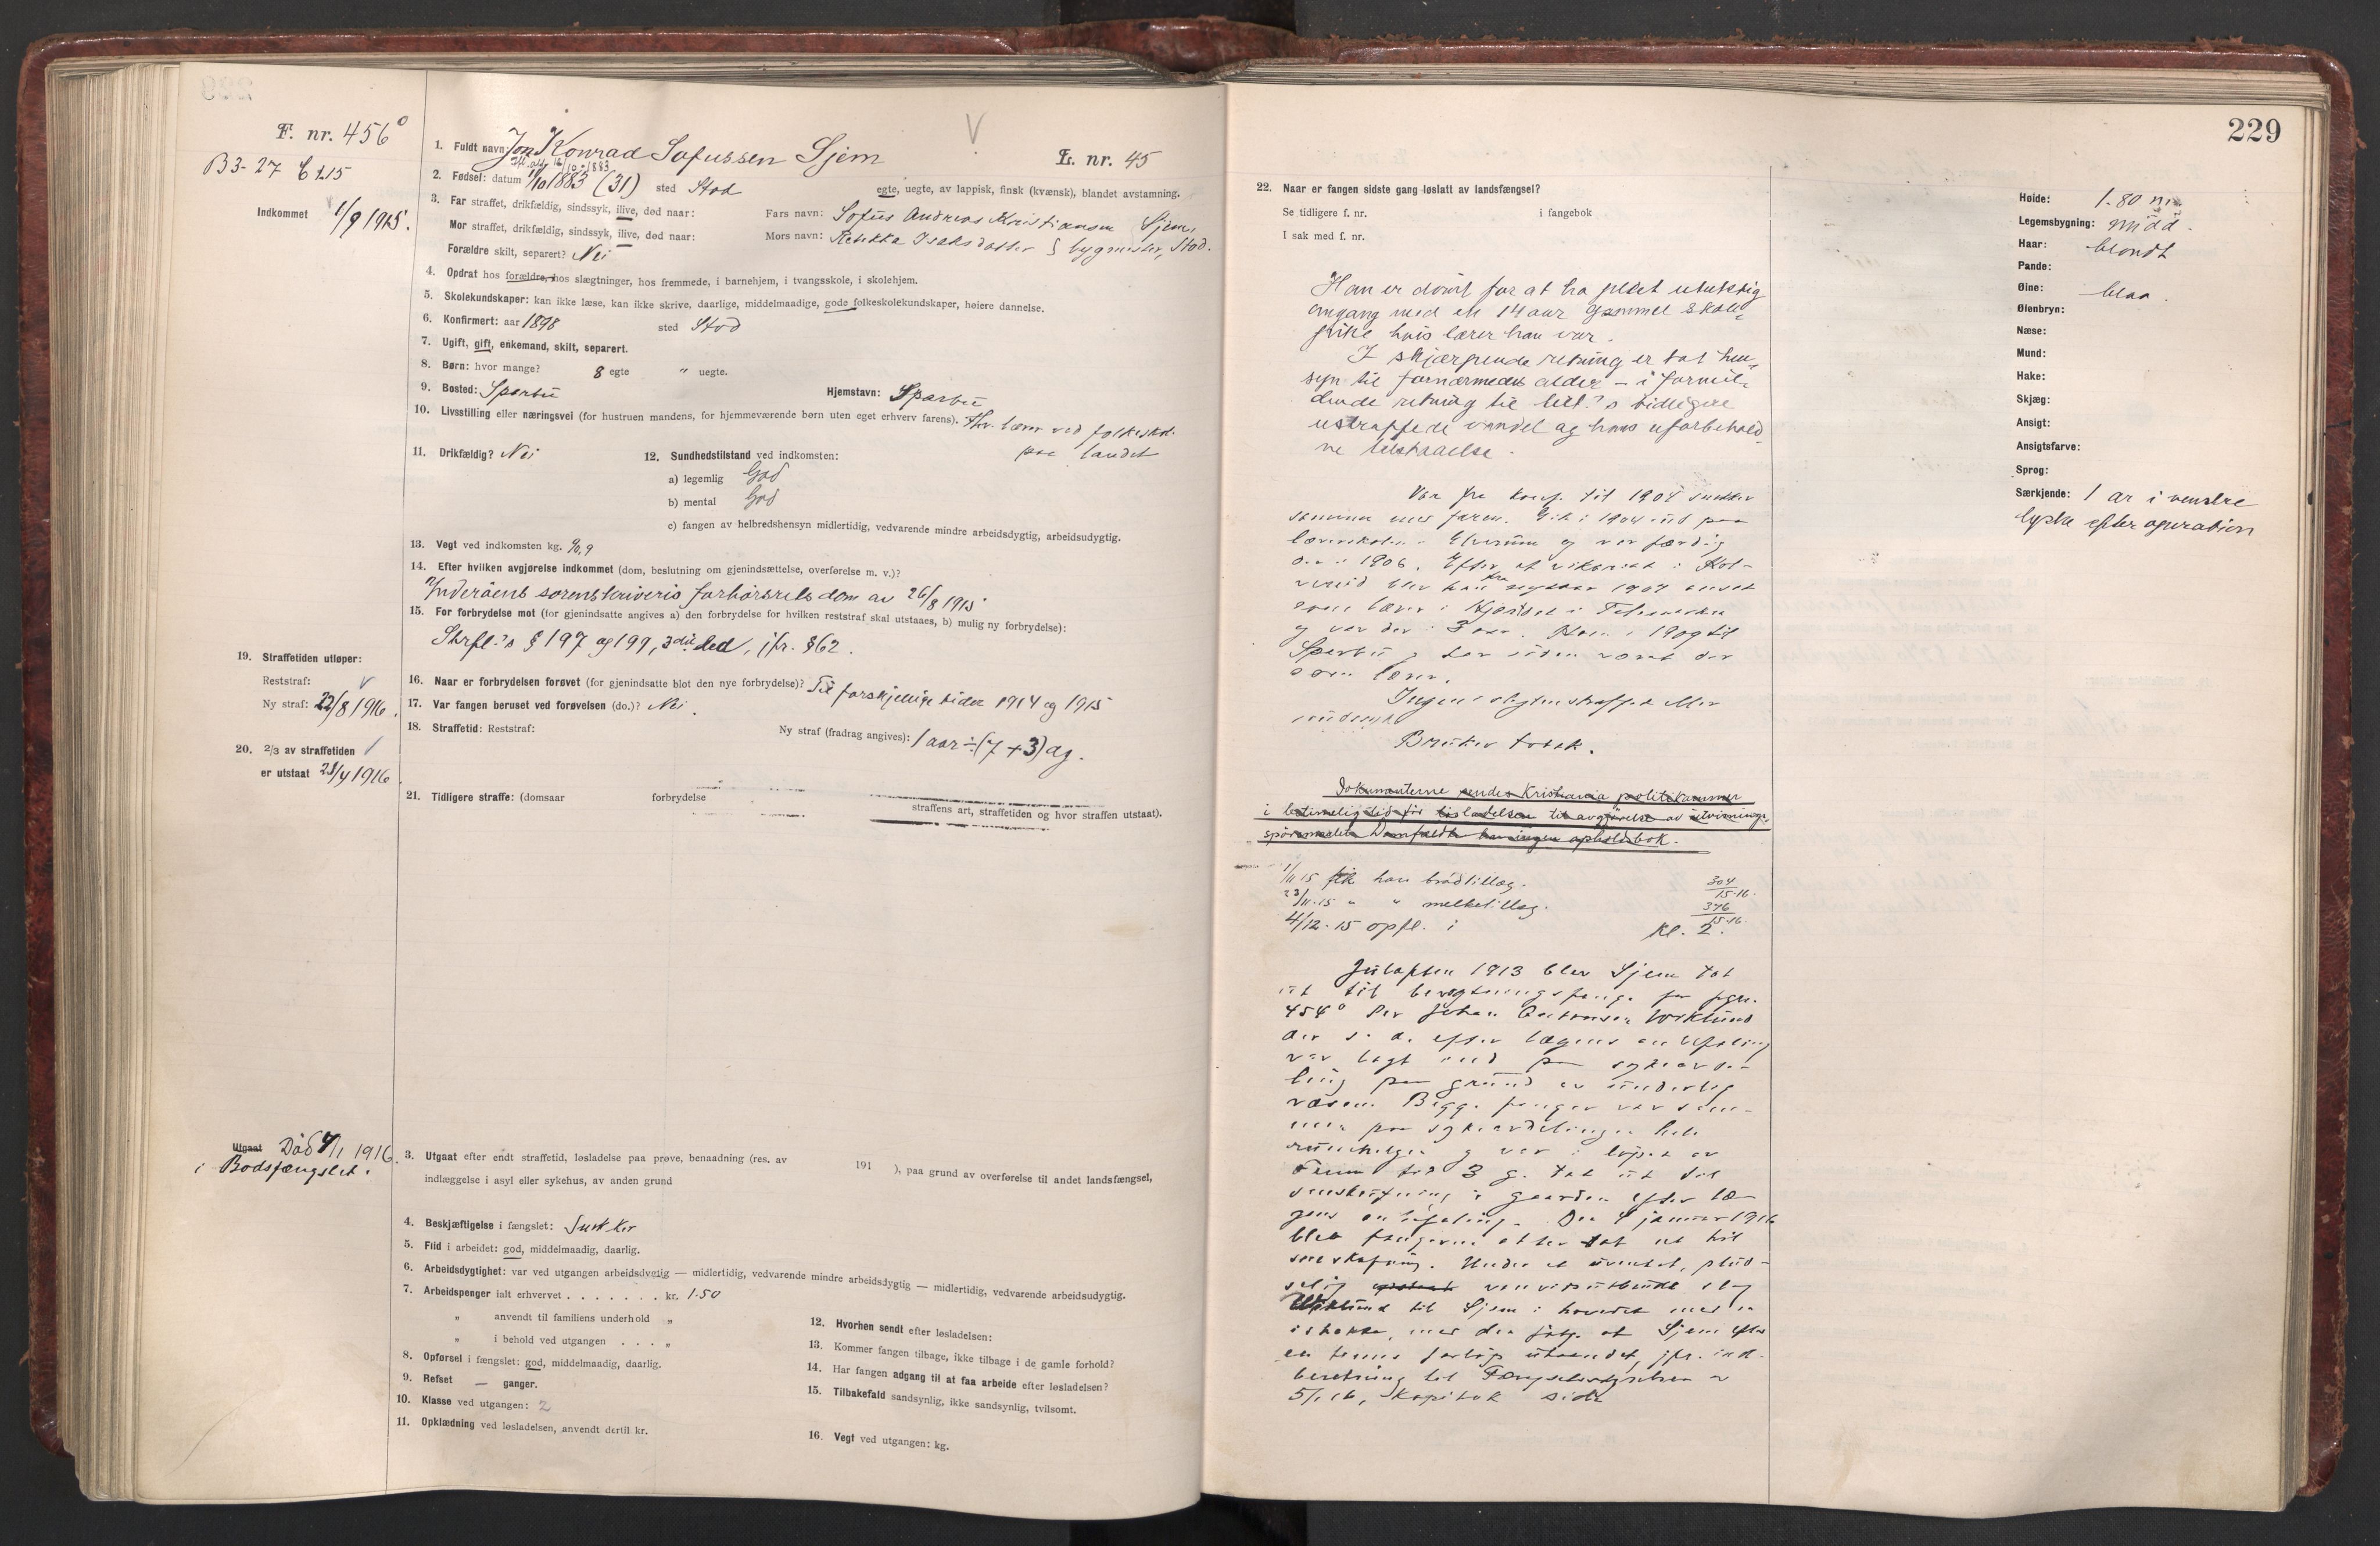 F. nr. 456°
B3-27 C 215
Indkommet 1/9 1915.
1. Fuldt navn: Jon Konrad Sofussen Sjem
L. nr. 45
16/10 1883
2. Fødsel: datum 1/10 1883 (31) sted Stod
egte, uegte, av lappisk, finsk (kvænsk), blandet avstamning.
3. Far straffet, drikfældig, sindssyk, ilive, død naar: Fars navn: Sofus Andreas Kristiansen Sjem,
Mor straffet, drikfældig, sindssyk, ilive, død naar: Mors navn: Rebekka Isaksdatter } bygmester, Stod.
Forældre skilt, separert? Nei
4. Opdrat hos forældre, hos slægtninger, hos fremmede, i barnehjem, i tvangsskole, i skolehjem.
5. Skolekundskaper: kan ikke læse, kan ikke skrive, daarlige, middelmaadige, gode folkeskolekundskaper, høiere dannelse.
6. Konfirmert: aar 1898 sted Stod
7. Ugift, gift, enkemand, skilt, separert.
8. Børn: hvor mange? 8 egte " uegte.
9. Bosted: Sparbu Hjemstavn: Sparbu
10. Livsstilling eller næringsvei (for hustruen mandens, for hjemmeværende børn uten eget erhverv farens). Fhv. lærer ved folkeskol.
paa landet
11. Drikfældig? Nei
12. Sundhedstilstand ved indkomsten:
a) legemlig God
b) mental God
c) fangen av helbredshensyn midlertidig, vedvarende mindre arbeidsdygtig, arbeidsudygtig.
13. Vegt ved indkomsten kg. 90,9
14. Efter hvilken avgjørelse indkommet (dom, beslutning om gjenindsættelse, overførelse m. v.)?
Inderøens sorenskriveris forhørsrets dom av 26/8 1915
15. For forbrydelse mot (for gjenindsatte angives a) den forbrydelse for hvilken reststraf skal utstaaes, b) mulig ny forbrydelse):
Strfl.'s § 197 og 199, 3die led, jfr. § 62.
19. Straffetiden utløper:
Reststraf:
Ny straf: 22/8 1916.
16. Naar er forbrydelsen forøvet (for gjenindsatte blot den nye forbrydelse)? Til forskjellige tider 1914 og 1915
17. Var fangen beruset ved forøvelsen (do.)? Nei.
18. Straffetid: Reststraf: Ny straf (fradrag angives): 1 aar ÷ (7+3) dg.
20. 2/3 av straffetiden
er utstaat 23/4 1916.
21. Tidligere straffe: (domsaar forbrydelse straffens art, straffetiden og hvor straffen utstaat).
Utgaat Død 4/1 1916.
i Bodsfængslet.
3. Utgaat efter endt straffetid, løsladelse paa prøve, benaadning (res. av 191 ), paa grund av overførelse til andet landsfængsel,
indlæggelse i asyl eller sykehus, av anden grund
4. Beskjæftigelse i fængslet: Snekker
5. Flid i arbeidet: god, middelmaadig, daarlig.
6. Arbeidsdygtighet: var ved utgangen arbeidsdygtig — midlertidig, vedvarende mindre arbeidsdygtig — midlertidig, vedvarende arbeidsudygtig.
7. Arbeidspenger ialt erhvervet . . . . . . . kr. 1.50
" anvendt til familiens underhold "
" i behold ved utgangen . . . "
8. Opførsel i fængslet: god, middelmaadig, daarlig.
9. Refset — ganger.
10. Klasse ved utgangen: 2
11. Opklædning ved løsladelsen, anvendt dertil kr.
12. Hvorhen sendt efter løsladelsen:
13. Kommer fangen tilbage, ikke tilbage i de gamle forhold?
14. Har fangen adgang til at faa arbeide efter løsladelsen?
15. Tilbakefald sandsynlig, ikke sandsynlig, tvilsomt.
16. Vegt ved utgangen: kg.
229
22. Naar er fangen sidste gang løslatt av landsfængsel?
Se tidligere f. nr. i fangebok
I sak med f. nr.
Han er dømt for at ha pleiet utuktig
omgang med en 14 aar gammel skole-
pike hvis lærer han var.
I skjærpende retning er tat hen-
syn til fornærmedes alder — i formil-
dende retning til tilt.'s tidligere
ustraffede vandel og hans uforbehold-
ne tilstaaelse.
Var fra konf. til 1904 snekker
sammen med faren. Gik i 1904 ind paa
lærerskolen i Elverum og var færdig
der i 1906. Efter et vikariat i Kol-
vereid blev han fra nytaar 1907 ansat
som lærer i Hjartdal i Telemarken
og var der i 3 aar. Kom i 1909 til
Sparbu og har siden været der
som lærer.
Ingen i slegten straffet eller
sindssyk
Bruker tobak.
Dokumenterne sendes Kristiania politikammer
i betimelig tid før løsladelsen til avgjørelse av utvisnings-
spørsmaalet. Domfældte har ingen opholdsbok.
1/11 15 fik han brødtillæg. 304/15-16.
23/11-15 " " melketillæg. 376/15-16
4/12-15 opfl. i kl. 2.
Juleaften 1913 blev Sjem tat
ut til bevogtningsfange for fgn.
454° Per Johan Antonsen Wiklund
der s. d. efter lægens anbefaling
var lagt ind paa sykeavde-
ling paa grund av underlig
væsen. Begge fanger var sam-
men paa sykeavdelingen hele
julehelgen og var i løpet av
denne tid 3 g. tat ut til
sneskufning i gaarden efter læ-
gens anbefaling. Den 4 januar 1916
blev fangerne atter tat ut til
sneskufning. Under et uventet, plud-
selig vanvidsutbrudd slog
Wiklund til Sjem i hovedet med en
ishakke, med den følge at Sjem efter
en times forløp utaandet, jfr. ind-
beretning til Fængselsstyrelsen av
5/1 16, kopibok side
Høide: 1.80 m.
Legemsbygning: midd.
Haar: blondt
Pande:
Øine: blaa.
Øienbryn:
Næse:
Mund:
Hake:
Skjæg:
Ansigt:
Ansigtsfarve:
Sprog:
Særkjende: 1 ar i venstre
lyske efter operation